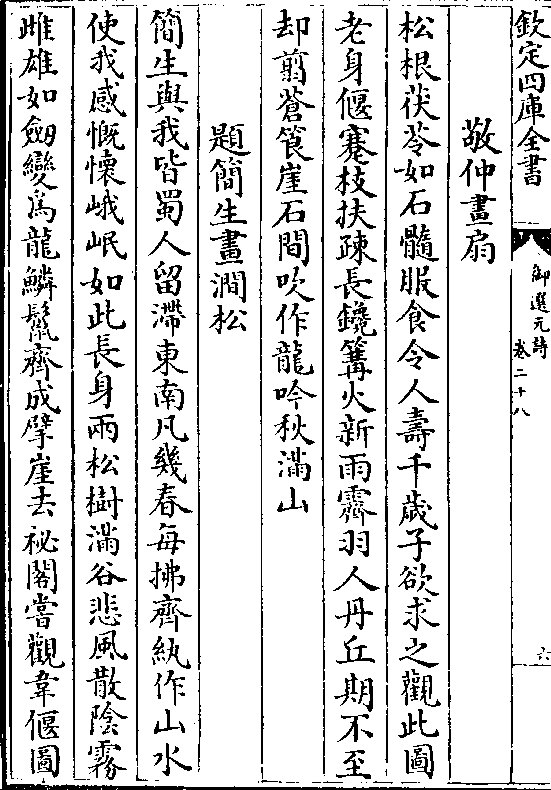 欽定四庫全書
御選元詩
卷二十八
六
敬仲畫扇
松根茯苓如石髓服食令人壽千歲子欲求之觀此圖
老身偃蹇枝扶疎長鑱篝火新雨霽羽人丹丘期不至
却翦蒼筤崖石間吹作龍吟秋滿山
題簡生畫澗松
簡生與我皆蜀人留滯東南凡幾春每拂齊紈作山水
使我感慨懷峨岷如此長身兩松樹滿谷悲風散陰霧
雌雄如劒變為龍鱗鬛齊成擘崖去祕閣嘗觀韋偃圖